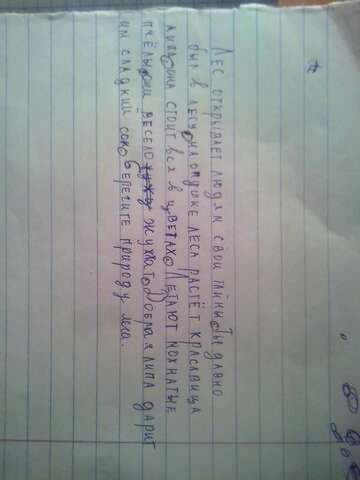 Лес открывает людям свои тайны Ты давно
был в лесу на опушке леса растёт красавица
липа она стоит вся в цветах Летают мохнатые
пчёлы они весело жужат Добрая липа дарит
им сладкий сок Берегите природу леса.